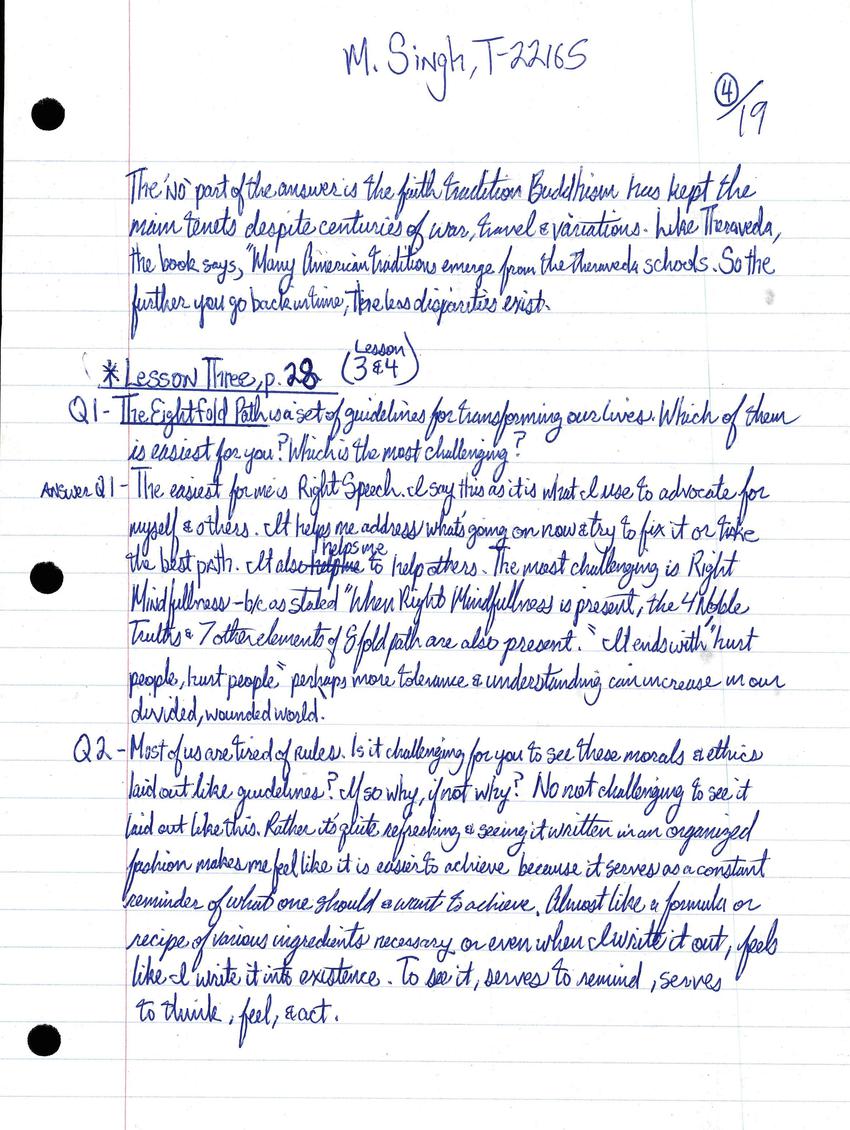 M. Singh, T-22165
4/19
The "No" part of the answer is the faith tradition Buddhism has kept the
main tenets despite centuries of war, travel & variations. Like Theraveda,
the book says, "Many American traditions emerge from the theraveda schools. So the
further you go back in time, the less disparities exist.
* Lesson Three, p. 28 (Lesson 3 & 4)
Q1 - The Eightfold Path is a set of guidelines for transforming our lives. Which of them
is easiest for you? Which is the most challenging?
Answer Q1 - The easiest for me is Right Speech. I say this as it is what I use to advocate for
myself & others. It helps me address what's going on now & try to fix it or take
the best path. It also helps me to help others. The most challenging is Right
Mindfullness - b/c as stated "When Right Mindfullness is present, the 4 Noble
Truths & 7 other elements of 8 fold path are also present." It ends with "hurt
people, hurt people" perhaps more tolerance & understanding can increase in our
divided, wounded world.
Q2 - Most of us are tired of rules. Is it challenging for you to see these morals & ethics
laid out like guidelines? If so why, if not why? No not challenging to see it
laid out like this. Rather it's quite refreshing & seeing it written in an organized
fashion makes me feel like it is easier to achieve because it serves as a constant
reminder of what one should & want to achieve. Almost like a formula or
recipe of various ingredients necessary or even when I write it out, feels
like I write it into existence. To see it, serves to remind, serves
to think, feel, & act.